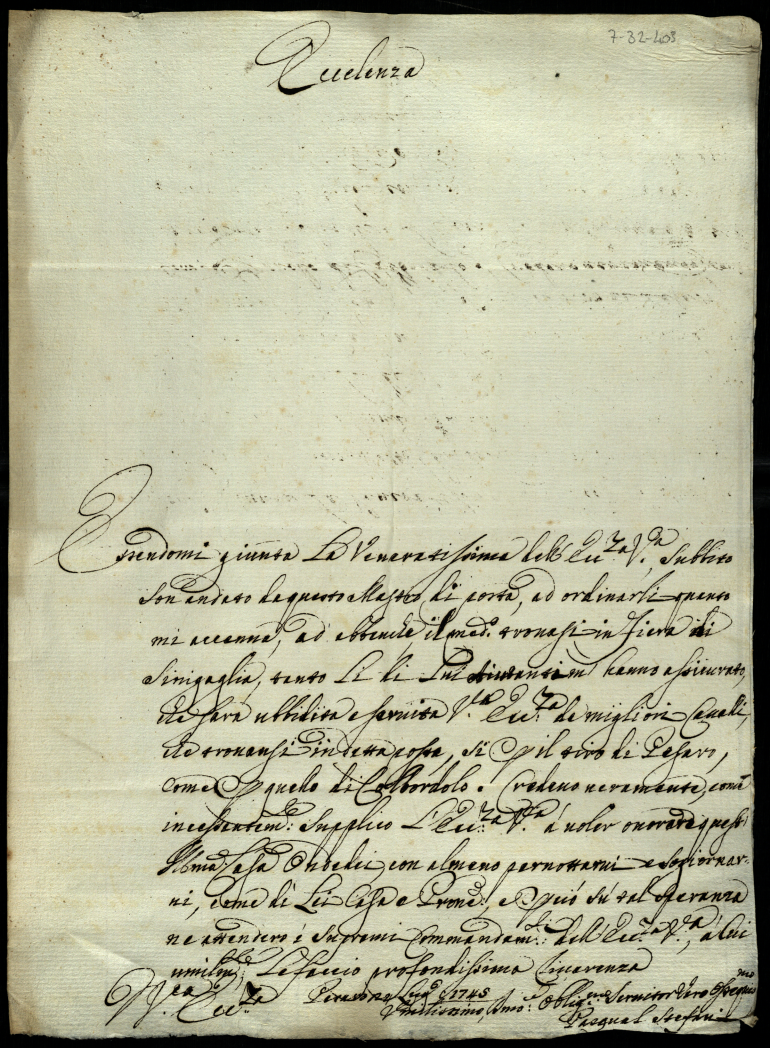 7-32-403
Eccelenza
Essendomi giunta La Veneratissima dell' Ecc.za V.ra, subbito
son andato da questo Mastro di posta, ad ordinarli quanto
mi accenna, ad ebbenche il med.o trovasi in Fiera di
Sinigaglia, tanto Li di Lui hanno assicurato,
che sarà ubbidita e servita V.ra Ecc.za de migliori Cavalli,
che trovansi in detta posta, sì p il tiro di Pesaro,
come p quello di Colbordolo. Credeno veramente, come
incessantem.te supplico L'Ecc.za V.ra á voler onorare questa
Ill.ma Casa Ondedei con almeno pernottarvi e sogiornar-
vi, come di Lei Casa e Prone, e p ció sú tal speranza
ne attenderò i supremi Commandam.ti dell' Ecc.za V.ra, a cui
umilm.te Le faccio profondissima riverenza
V.ra Ecc.za
Lug.o 1745
Umilissimo, Obblig.mo Servitor Vero Osseq.mo
Pasqual Stefani